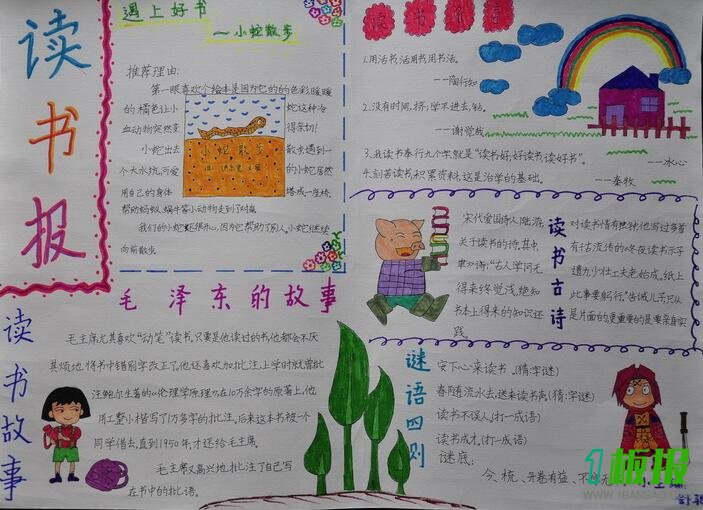 读书报
遇上好书
——小蛇散步
推荐理由:
第一眼喜欢个绘本是因为它的的色彩,暖暖
的橘色让小 蛇这种冷
血动物突然变 得亲切!
小蛇出去 散步遇到一
个大水坑,可爱 的小蛇居然
用自己的身体 搭成一座桥,
帮助蚂蚁、蜗牛等小动物走到了对面
我们的小蛇还很开心,因为它帮助了别人,小蛇继续
向前散步。
小蛇散步
读书
1.用活书,活用书,用书法。
——陶行知
2.没有时间,挤;学不进去,钻。
——谢觉哉
3.我读书奉行九个字,就是“读书好,好读书,读好书”。
——冰心
4.刻苦读书,积累资料,这是治学的基础。
——秦牧
读书古诗
宋代爱国诗人陆游,
关于读书的诗,其中
“古人学问无
得来终觉浅,绝知
书本上得来的知识还
践。
对读书情有独钟,他写过多首
有千古流传的《冬夜读书示子
遗力,少壮工夫老始成。纸上
此事要躬行。”告诫儿子只从
是片面的,更重要的是要亲自实
毛泽东的故事
读书故事
毛主席尤其喜欢“动笔”读书,只要是他读过的书他都会不厌
其烦地将书中错别字改正了。他还喜欢加批注,上学时就曾批
注鲍尔生著的《伦理学原理》,在10万余字的原著上,他
用工整小楷写了1万多字的批注。后来这本书被一个
同学借去,直到1950年,才还给毛主席。
毛主席又高兴地批注了自己写
在书中的批语。
谜语四则
安下心来读书。(猜:字谜)
春随流水去,送来读书声(猜:字谜)
读书不误人(打一成语)
读书成才。(打一成语)
谜底:
今、梳、开卷有益、不学无
1板报
WWW.1BANBAO.COM